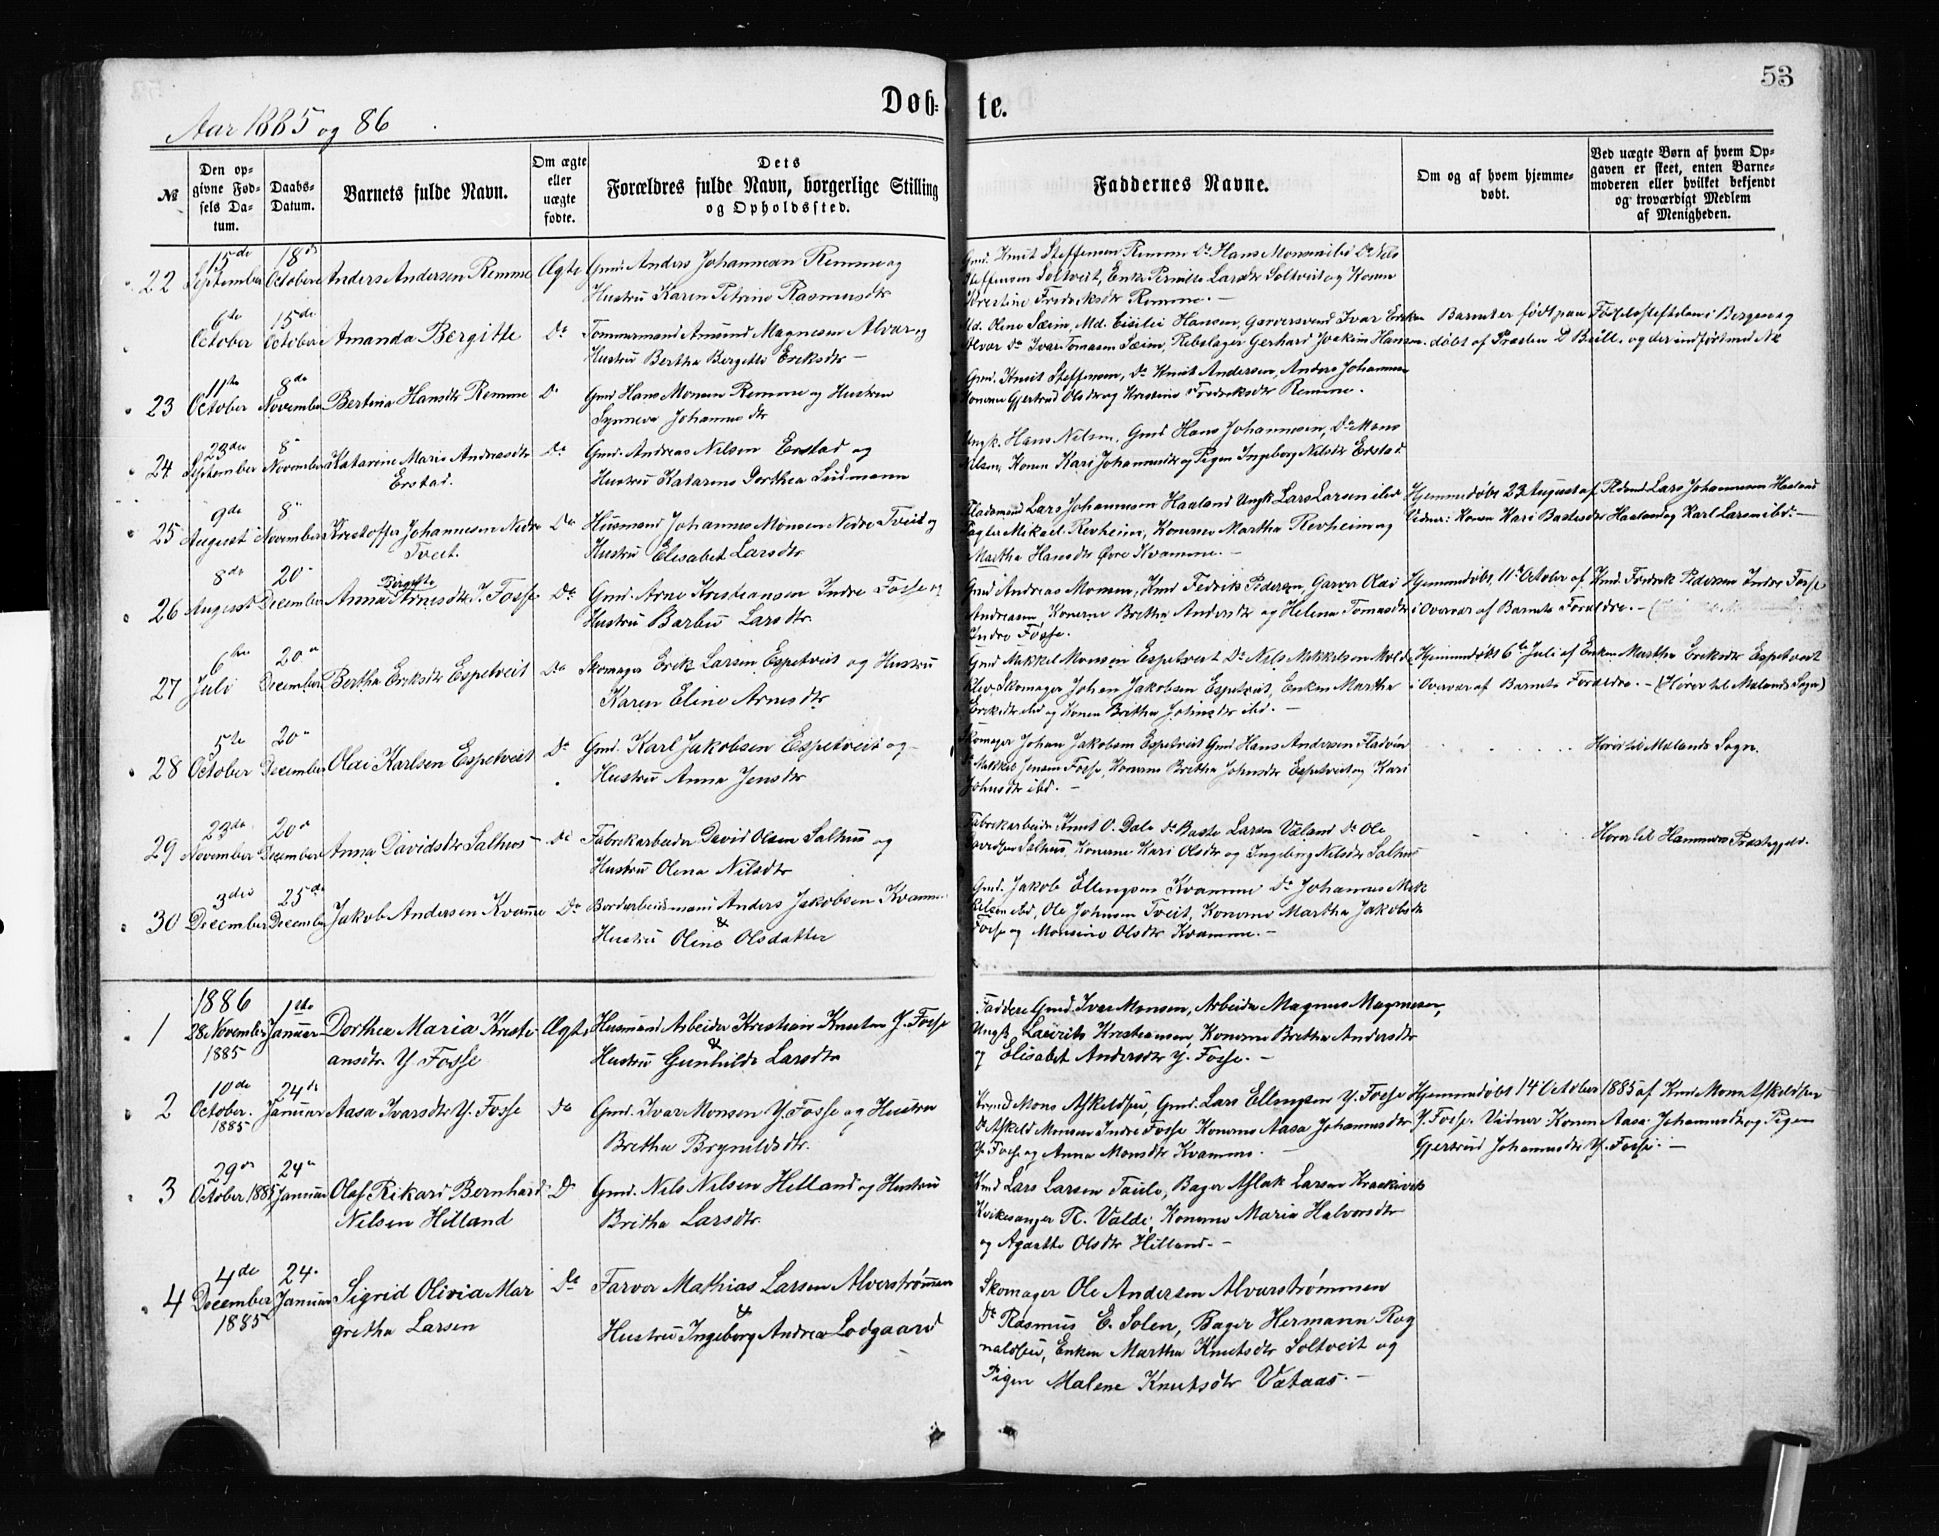 53
Døb= te.
Aar 1885 og 86
№
Den op-
givne Fød-
sels Da-
tum.
Daabs-
Datum.
Barnets fulde Navn.
Om ægte
eller
uægte
fødte.
Dets
Forældres fulde Navn, borgerlige Stilling
og Opholdssted.
Faddernes Navne.
Om og af hvem hjemme-
døbt.
Ved uægte Børn af hvem Op-
gaven er skeet, enten Barne-
moderen eller hvilket bekjendt
og troværdigt Medlem
af Menigheden.
22
15de September
18de October
Anders Andersen Remme
Ægte
Gmd. Anders Johannesen Remme og
Hustru Karen Petrine Rasmusdtr
Gmd. Knut Steffensen Remme Do Hans Monsen ibd Do Nils
Steffensen Soltveit, Enke Pernille Larsdtr Soltveit og Konen
Kirstine Fredriksdtr Remme. —
6te October
15de October
Amanda Bergitte
Do
Tømmermand Amund Magnesen Alver og
Hustru Bertha Bergitte Eriksdtr —
Md. Oline Sæim, Md. Hansen, Garversvend Ivar Eriksen
Alvær Do Ivar Tomasen Sæim, Rebslager Gerhard Joakim Hansen.
Barnet er født paa Fødselsstiftelsen i Bergen og
døbt af Præsten D Brüll. og der indført med №
23
11te October
8de November
Bertina Hansdtr Remme
Do
Gmd Hans Monsen Remme og Hustru
Synneva Johannesdtr
Gmd. Knut Steffensen, Do Knut Andersen, Anders Johannesen
Konerne Gjertrud Olsdtr og Kristine Fredriksdtr Remme.
24
23de September
8 November
Katarine Marie Andreasdtr
Erstad.
Do
Gmd. Andreas Nilsen Erstad og
Hustru Katarine Dorthea Lüdmann
Ungk. Hans Nilsen, Gmd Hans Johannesen, Do Mons
Nilsen, Konen Kari Johannesdtr og Pigen Ingeborg Nilsdtr Erstad
25
9de August
8 November
Kristoffer Johannesen Nedre
Tveit.
Do
Husmand Johannes Monsen Nedre Tveit og
Hustru Elisabet Larsdtr
Pladsmand Lars Johannesen Haaland Ungk Lars Larsen ibd
Mikael Revheim, Konerne Martha Revheim og
Martha Hansdtr Øvre Kvamme. —
Hjemmedøbt 23 August af Pldsmd Lars Johannesen Haaland
Vidner: Konen Kari Haaland og Karl Larsen ibd. —
26
8de August
20 December
Bergitte
Anna Arnesdtr I. Fosse
Do
Gmd. Arne Kristiansen Indre Fosse og
Hustru Barbro Larsdtr.
Gmd Andreas Monsen, Kmd Fedrik Pedersen, Garver Olai
Andreasen, Konerne Bretha Andersdtr og Helena Tomasdtr
Indre Fosse.
Hjemmedøbt 11te October af Kmd. Fredrik Pedersen Indre Fosse
i Overvær af Barnets Forældre. —
27
6te Juli
20 December
Bertha Eriksdtr Espetveit
Do
Skomager Erik Larsen Espetveit og Hustru
Karen Eline Arnesdtr
Gmd Mikkel Monsen Espetveit Do Nils Mikkelsen Molde
klev Skomager Johan Jakobsen Espetveit, Enken Martha
Eriksdtr ibd og Konen Bretha Johnsdtr ibd. —
Hjemmedøbt 6te Juli af Enken Martha Eriksdtr Espetveit
i Overvær af Barnets Forældre. — (Hører til Mælands Sogn)
28
5te October
20 December
Olai Karlsen Espetveit
Do
Gmd. Karl Jakobsen Espetveit og —
Hustru Anna Jensdtr
Skomager Johan Jakobsen Espetveit Gmd Hans Andersen
Do Mikkel Jensen Fosse, Konerne Bretha Johnsdtr Espetveit og Kari
Johnsdtr ibd. —
Hører til Mælands Sogn.
29
23de November
20 December
Anna Davidsdtr Salhus —
Do
Fabrikarbeider David Olsen Salhus og
Hustru Olena Nilsdtr
Fabrikarbeider Knut O. Dale Do Baste Larsen Væland Do Ole
Davidsen Salhus, Konerne Kari Olsdtr og Ingeborg Nilsdtr Salhus
Hører til Hammers Præstegjeld.
30
3die December
25de December
Jakob Andersen Kvamme
Do
Bordarbeidsmand Anders Jakobsen Kvamme
&
Hustru Oline Olsdatter
Gmd. Jakob Ellingsen Kvamme Do Johannes Mik
kelsen ibd, Ole Johnsen Tveit, Konerne Martha Jakobsdtr
Fosse og Monsine Olsdtr Kvamme. —
1886
1
28 November 1885
1ste Januar
Dorthea Maria Kristi-
ansdtr Y Fosse
Ægte
Husmand Arbeider Kristian Knutsen Y. Fosse
&
Hustru Gunhilda Larsdtr
Faddere Gmd. Ivar Monsen, Arbeider Magnus Magnesen,
Ungk. Lauritz Kristiansen, Konerne Bretha Andersdtr
og Elisabet Andersdtr Y. Fosse. —
2
10de October. 1885
24de Januar
Aasa Ivarsdtr Y. Fosse
Do
Gmd. Ivar Monsen Y. Fosse og Hustru
Bretha Brynildsdtr.
Kmd Mons Askeldsen, Gmd. Lars Ellingsen Y. Fosse
Do Askeld Monsen Indre Fosse Konerne Aasa Johannesdtr
Y. Fosse og Anna Monsdtr Kvamme.
Hjemmedøbt 14 October 1885 af Kmd Mons Askeldsen
Y. Fosse. Vidner Konen Aasa Johannesdtr og Pigen
Gjertrud Johannesdtr Y. Fosse. —
3
29de October 1885
24 Januar
Olaf Rikard Bernhard
Nilsen Hilland
Do
Gmd. Nils Nilsen Hilland og Hustru
Britha Larsdtr.
Kmd Lars Larsen Taule, Bager Aslak Larsen
Kirkesanger N. Valde, Konerne Maria Halvorsdtr
og Agatha Olsdtr Hilland. —
4
4de December 1885
24 Januar
Sigrid Olivia Mar
gretha Larsen
Do
Farver Mathias Larsen Alverstrømmen
&
Hustru Ingeborg Andrea Lodgaard
Skomager Ole Andersen Alverstrømmen
Do Rasmus E. Solen, Bager Hermann Rog
naldsen, Enken Martha Knutsdtr Soltveit og
Pigen Malene Knutsdtr Vætaas. —